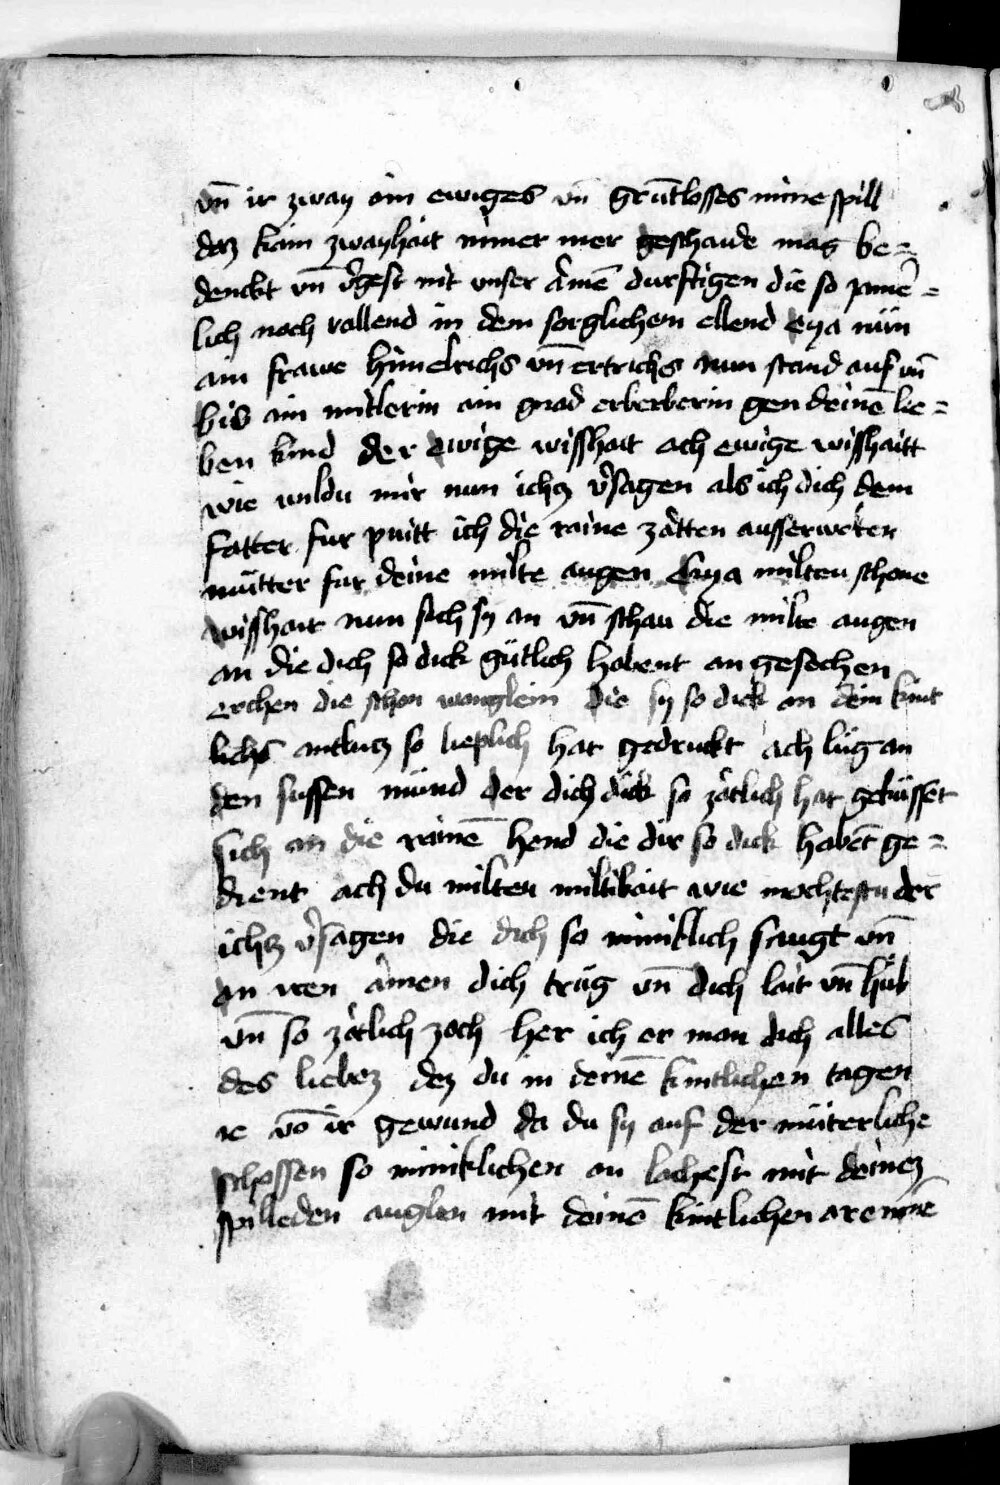 vn̄ ir zway ain ewiges vn̄ grūtlosses mine spill
dez kain zwayhait nimer mer geschaide mag be=
denckt vn̄ v̾gest nit vnser âmē durftigen die so jamē=
lich noch vallend in dem sorglichem ellend eya nün
ain frawe himelrichs vn̄ ertrichs nun stand auf vn̄
bis ain mitlerin ain gnad erberberin gen deinē lie=
ben kind der ewige wisshait ach ewige wisshaitt
wie wildu mir nun ichz v̾sagen als ich dich dem
fatter fur putt ich die raine zàtten ausserwelten
mütter fur deine milte augen Eya milten schone
wisshait nun sich sy an vn̄ schau die milte augen
an die dich so dick gütlich habent an gesechen
erchen die schon wanglein die sy so dick an dein kint
lichs antlutz so lieplich hat gedruckt ach lüg an
den sussen münd der dich dick so zàtlich hat geküsset
sich an die rainē hend die dir so dick habēt ge=
dient ach du milten miltikait wie mochtestu der
ichz v̾sagen die dich so miniklich saugt vn̄
an iren âmen dich trüg vn̄ dich lait vn̄ hüb
vn̄ so zàtlich zoch her ich er man dich alles
des liebez dez du in deinē kintlichen tagen
ie vō ir gewund da du sy auf der müterliche
schossen so miniklichen an lachest mit deinez
spilleden auglen mit deinē kintlichen aremnē